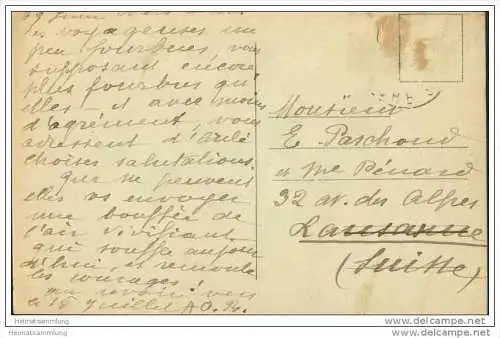 Les voyageuses un
peu fourbues, vous
supposant encore
plus fourbus qu'
elles – et avec moins
d'agrément, vous
adressent d'
choisies salutations.
que ne peuvent
elles vs envoyer
une bouffée de
l'air vivifiant
qui souffle aujour
d'hui et remonte
les courages!
au revoir vers
le 18 Juillet
Monsieur
E. Paschoud
et Mme Pénard
32 av. des Alpes
Lausanne
(Suisse)
Heimatsammlung
Heimatsammlung